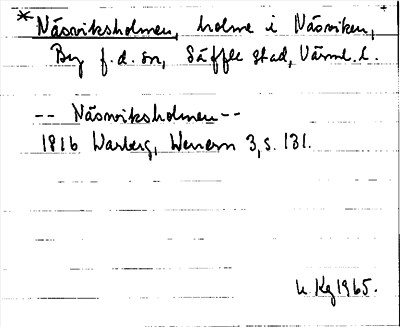 * Näsviksholmen, holme i Näsviken,
By f.d. sn, Säffle stad, Värml. l.
-- Näsviksholmen --
1816 Warberg, Wenern 3, s. 131.
u Kg 1965.